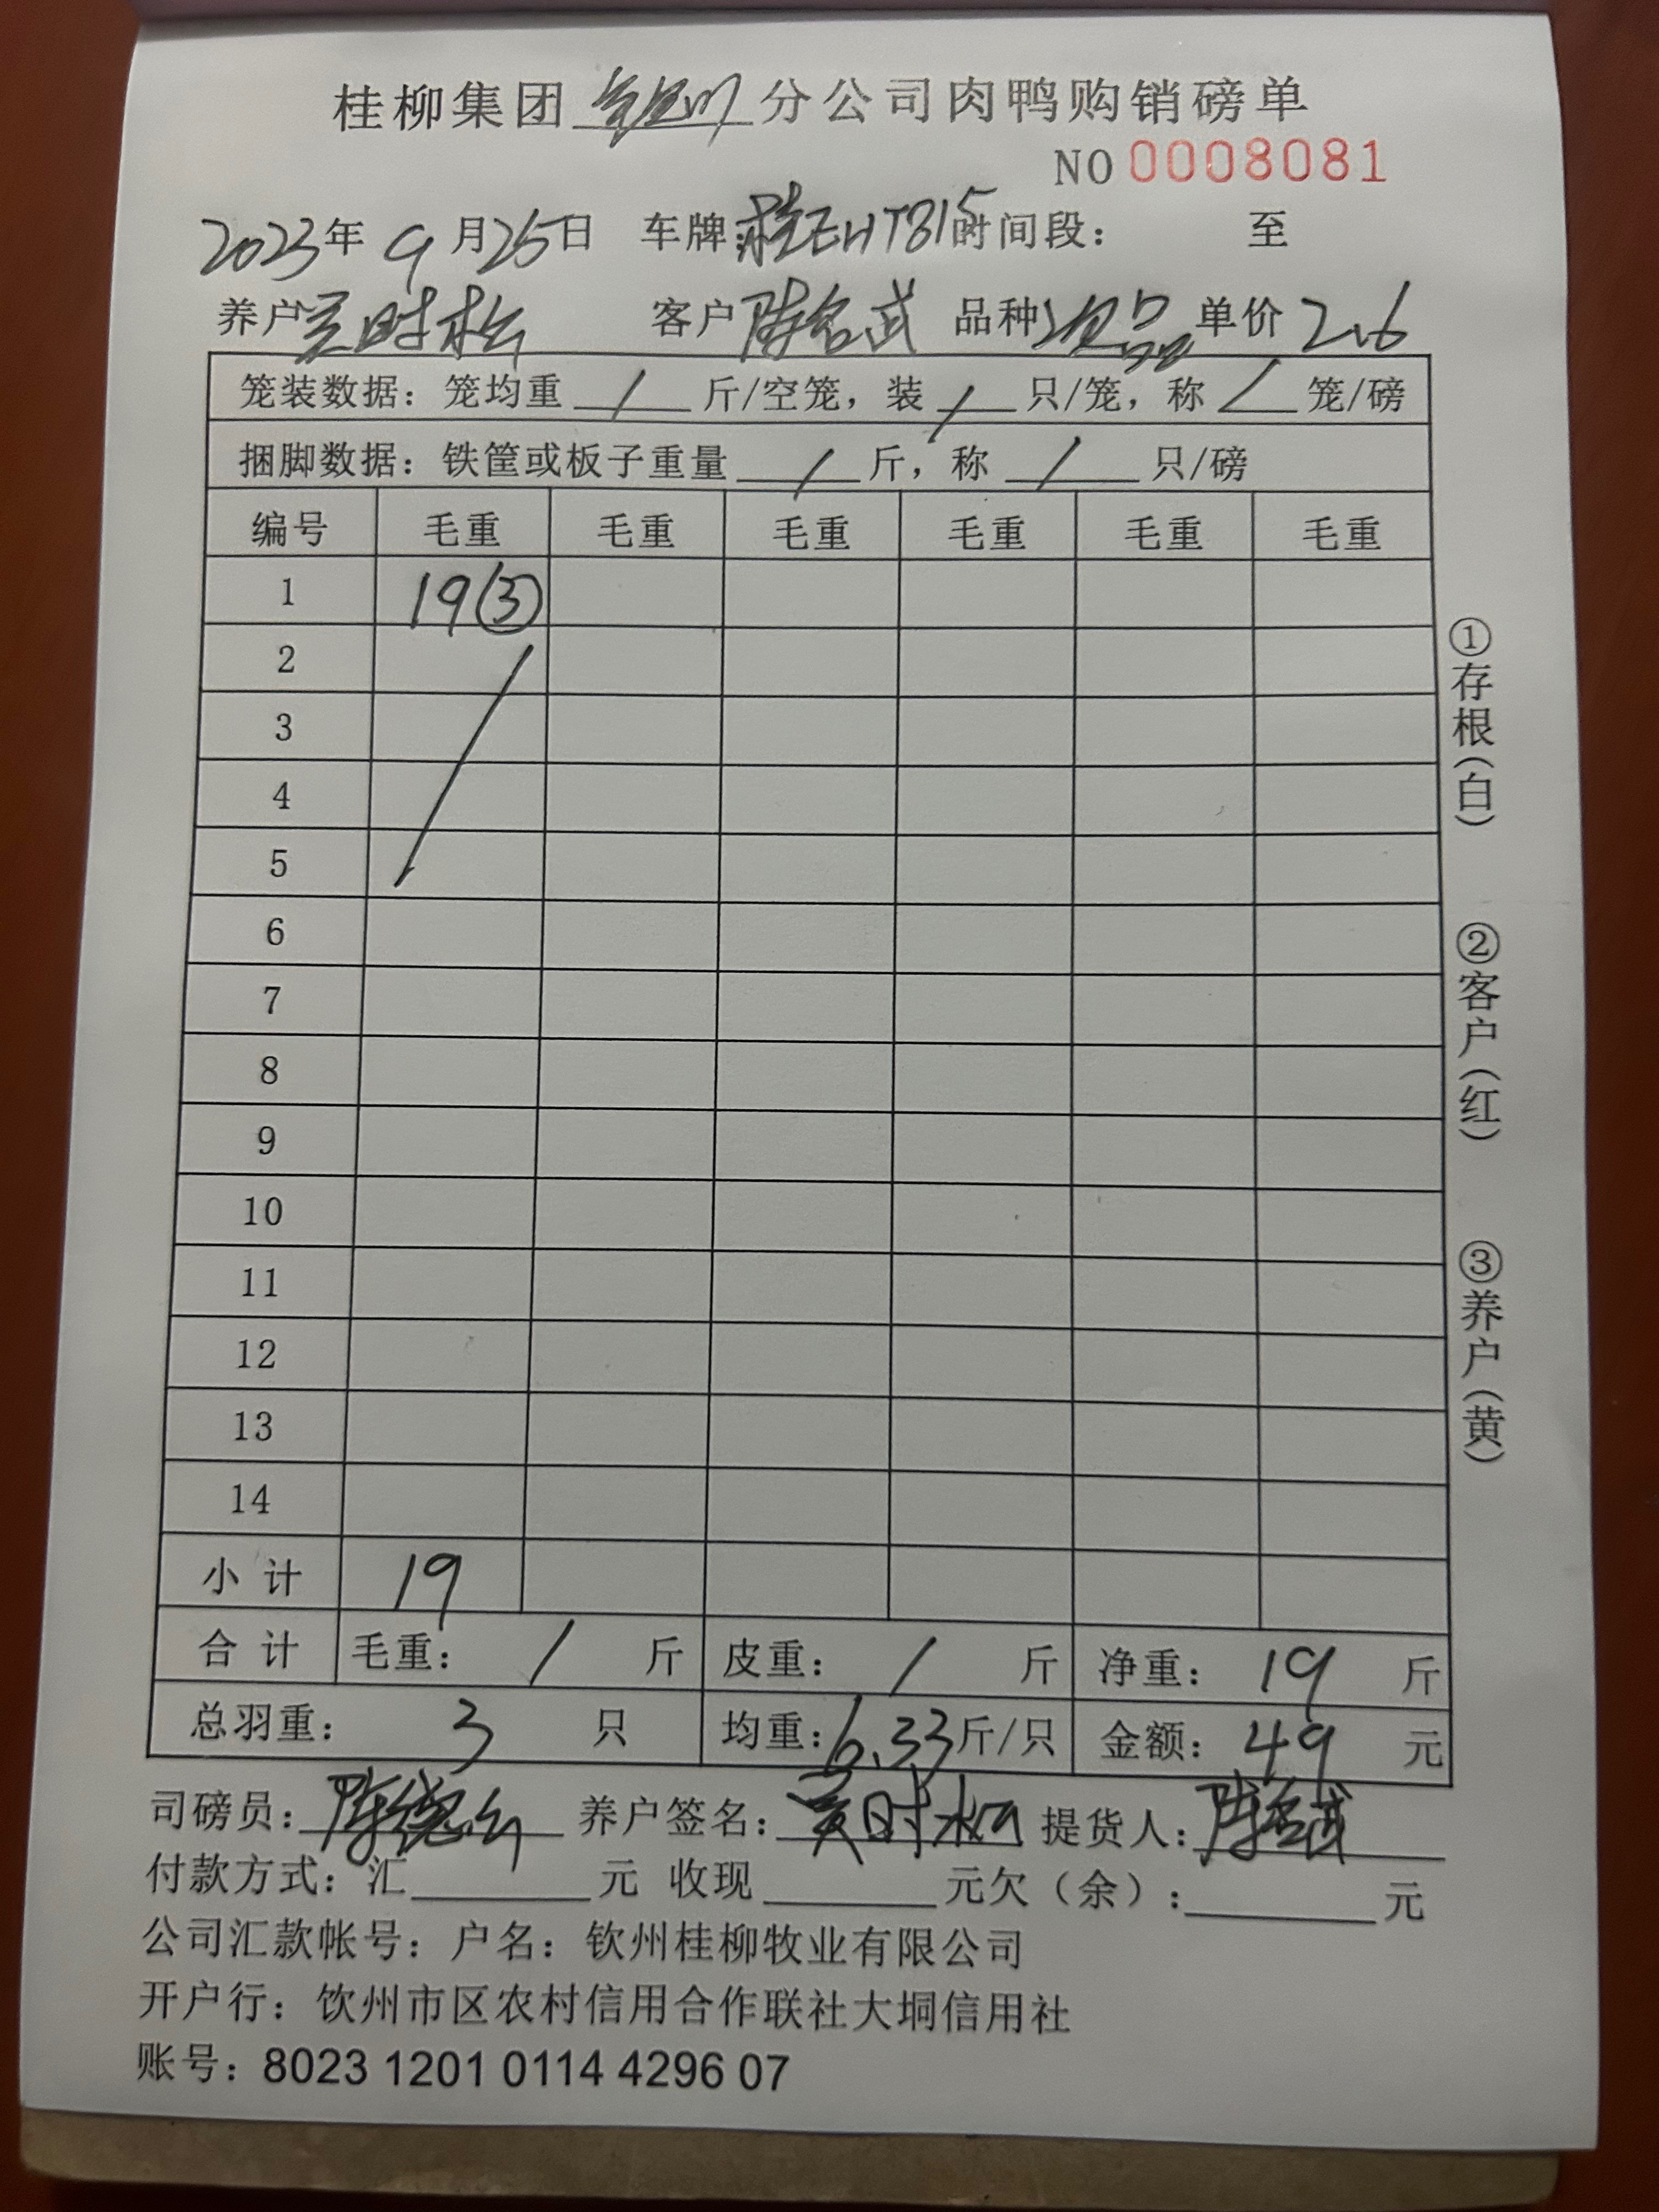 桂柳集团 分公司肉鸭购销磅单
NO 0008081
2023年 9月25日 车牌:桂EHT815时间段: 至
养户 时松 客户陈名武 品种次品 单价2.6
笼装数据:笼均重 / 斤/空笼,装 / 只/笼,称 / 笼/磅
捆脚数据:铁筐或板子重量 / 斤,称 / 只/磅
编号 毛重 毛重 毛重 毛重 毛重 毛重
1 19③
2
3
4
5
6
7
8
9
10
11
12
13
14
小计 19
合计 毛重: / 斤 皮重: / 斤 净重: 19 斤
总羽重: 3 只 均重:6.33斤/只 金额: 49 元
司磅员:陈 养户签名: 时松 提货人:陈名武
付款方式:汇 元 收现 元欠(余): 元
公司汇款帐号:户名:钦州桂柳牧业有限公司
开户行:饮州市区农村信用合作联社大垌信用社
账号:8023 1201 0114 4296 07
①存根(白)
②客户(红)
③养户(黄)